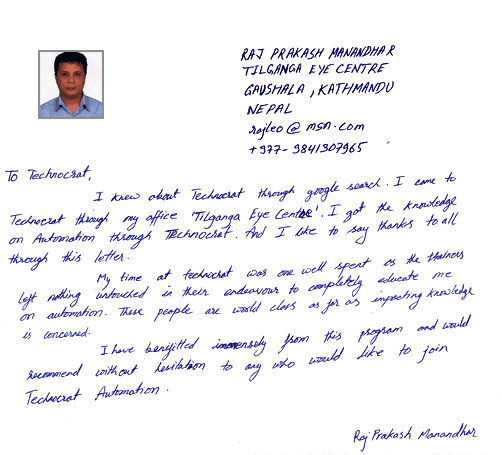 RAJ PRAKASH MANANDHAR
TILGANGA EYE CENTRE
GAUSHALA, KATHMANDU
NEPAL
rajleo@msn.com
+977-9841307965
To Technocrat,
I knew about Technocrat through google search. I came to
Technocrat through my office 'Tilganga Eye Centre'. I got the knowledge
on Automation through Technocrat. And I like to say thanks to all
through this letter.
My time at technocrat was one well spent as the thainers
left nothing untouched in their endeavour to completely educate me
on automation. These people are would class as far as impacting knowledge
is concerned.
I have benifitted immensely from this program and would
recommend without hesitation to any who would like to join
Technocrat Automation.
Raj Prakash Manandhar